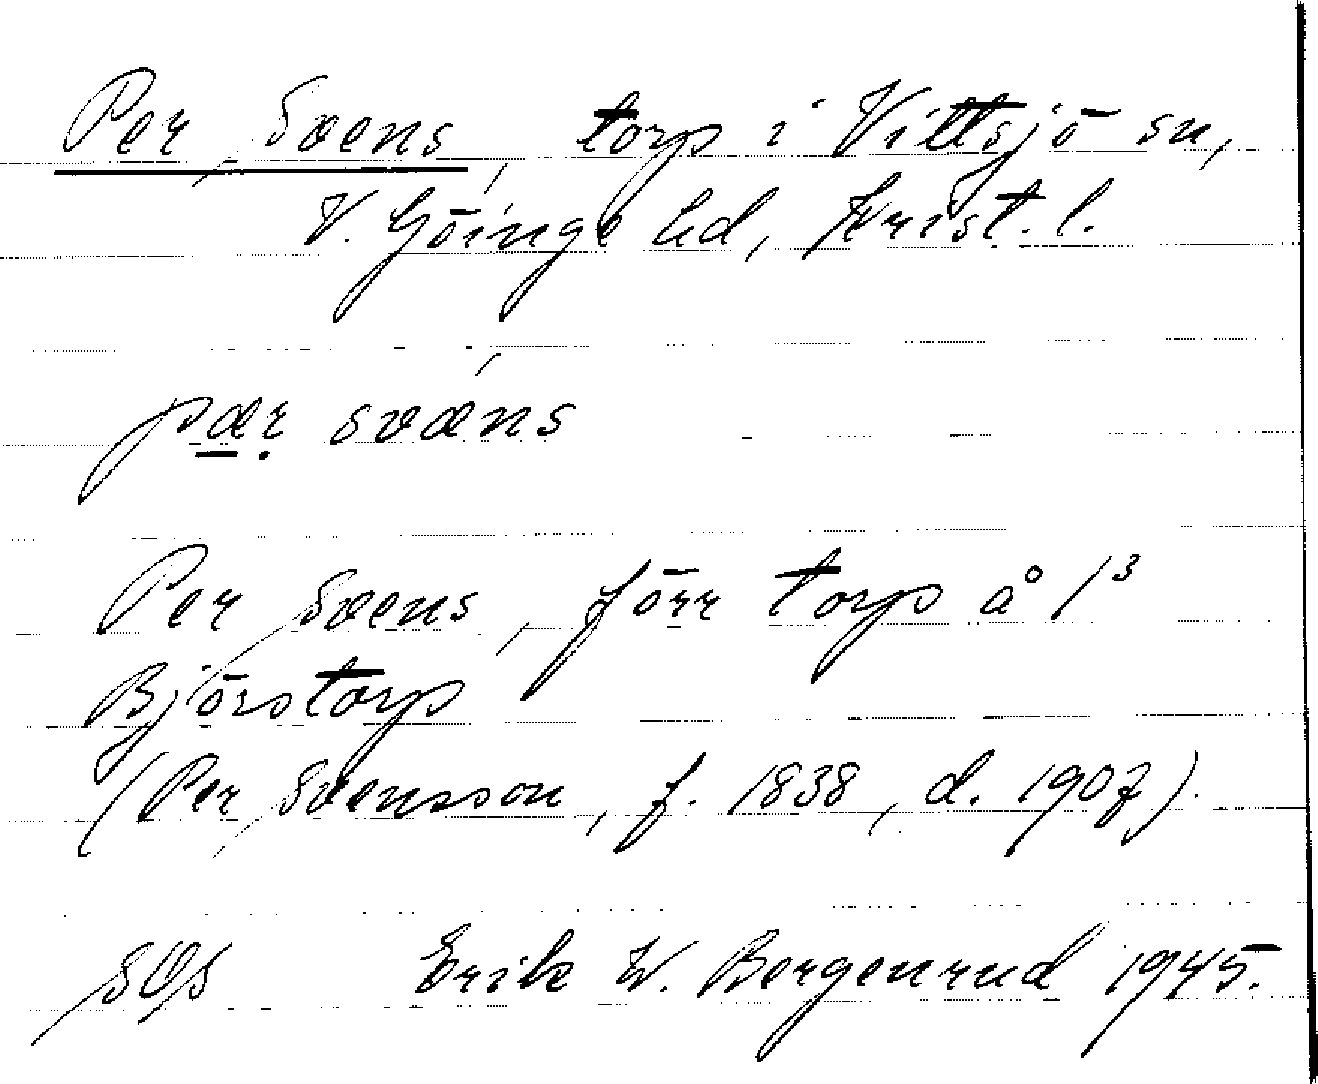 Per Svens, torp i Vittsjö sn,
V. Göinge hd, Krist. l.
pær svǽns
Per Svens, förr torp å 1³
Björstorp
(Per Svensson, f. 1838, d. 1907).
Erik W. Bergenrud 1945.